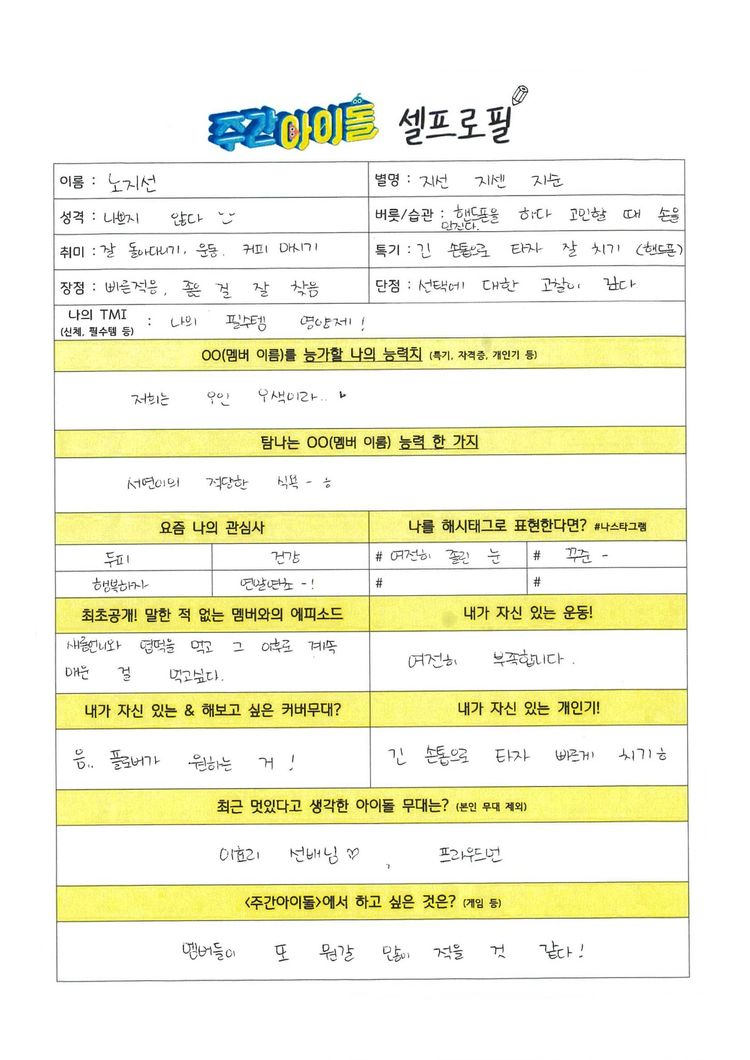 주간아이돌 셀프로필
이름 : 노지선
별명 : 지선 지센 지순
성격 : 나쁘지 않다
버릇/습관 : 핸드폰을 하다 고민할 때 손을
만진다.
취미 : 잘 돌아다니기, 운동, 커피 마시기
특기 : 긴 손톱으로 타자 잘 치기 (핸드폰)
장점 : 빠른적응, 좋은 걸 잘 찾음
단점 : 선택에 대한 고찰이 길다
나의 TMI
(신체, 필수템 등) : 나의 필수템 영양제!
OO(멤버 이름)를 능가할 나의 능력치 (특기, 자격증, 개인기 등)
저희는 9인 9색이라..
탐나는 OO(멤버 이름) 능력 한 가지
서연이의 적당한 식욕 - ㅎ
요즘 나의 관심사
나를 해시태그로 표현한다면? #나스타그램
두피
건강
# 여전히 졸린 눈
# 꾸준 -
행복하자
연말연초 - !
#
#
최초공개! 말한 적 없는 멤버와의 에피소드
내가 자신 있는 운동!
새롬언니와 엽떡을 먹고 그 이후로 계속
매운 걸 먹고싶다.
여전히 부족합니다.
내가 자신 있는 & 해보고 싶은 커버무대?
내가 자신 있는 개인기!
음.. 플로버가 원하는 거!
긴 손톱으로 타자 빠르게 치기ㅎ
최근 멋있다고 생각한 아이돌 무대는? (본인 무대 제외)
이효리 선배님♡, 프라우드먼
<주간아이돌>에서 하고 싶은 것은? (게임 등)
멤버들이 또 뭔갈 많이 적을 것 같다!